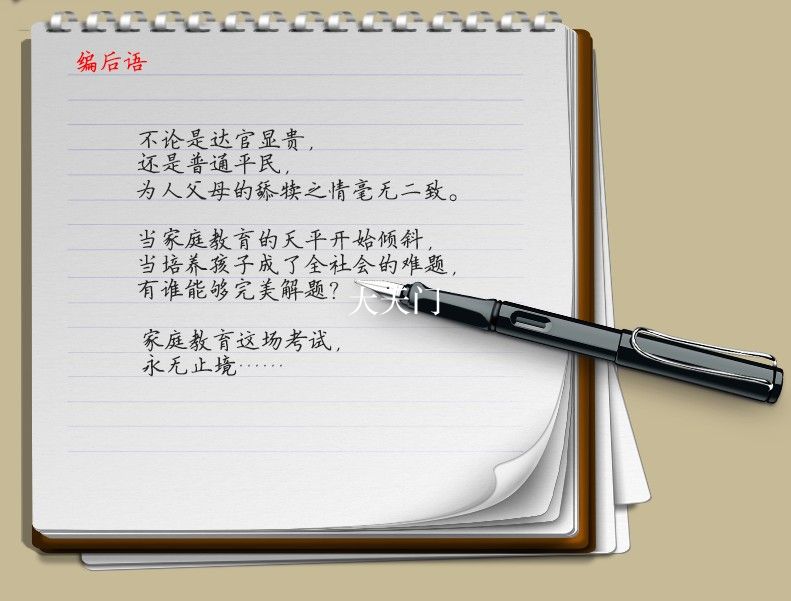 编后语
不论是达官显贵，
还是普通平民，
为人父母的舔犊之情毫无二致。
当家庭教育的天平开始倾斜，
当培养孩子成了全社会的难题，
有谁能够完美解题？
大天门
家庭教育这场考试，
永无止境……